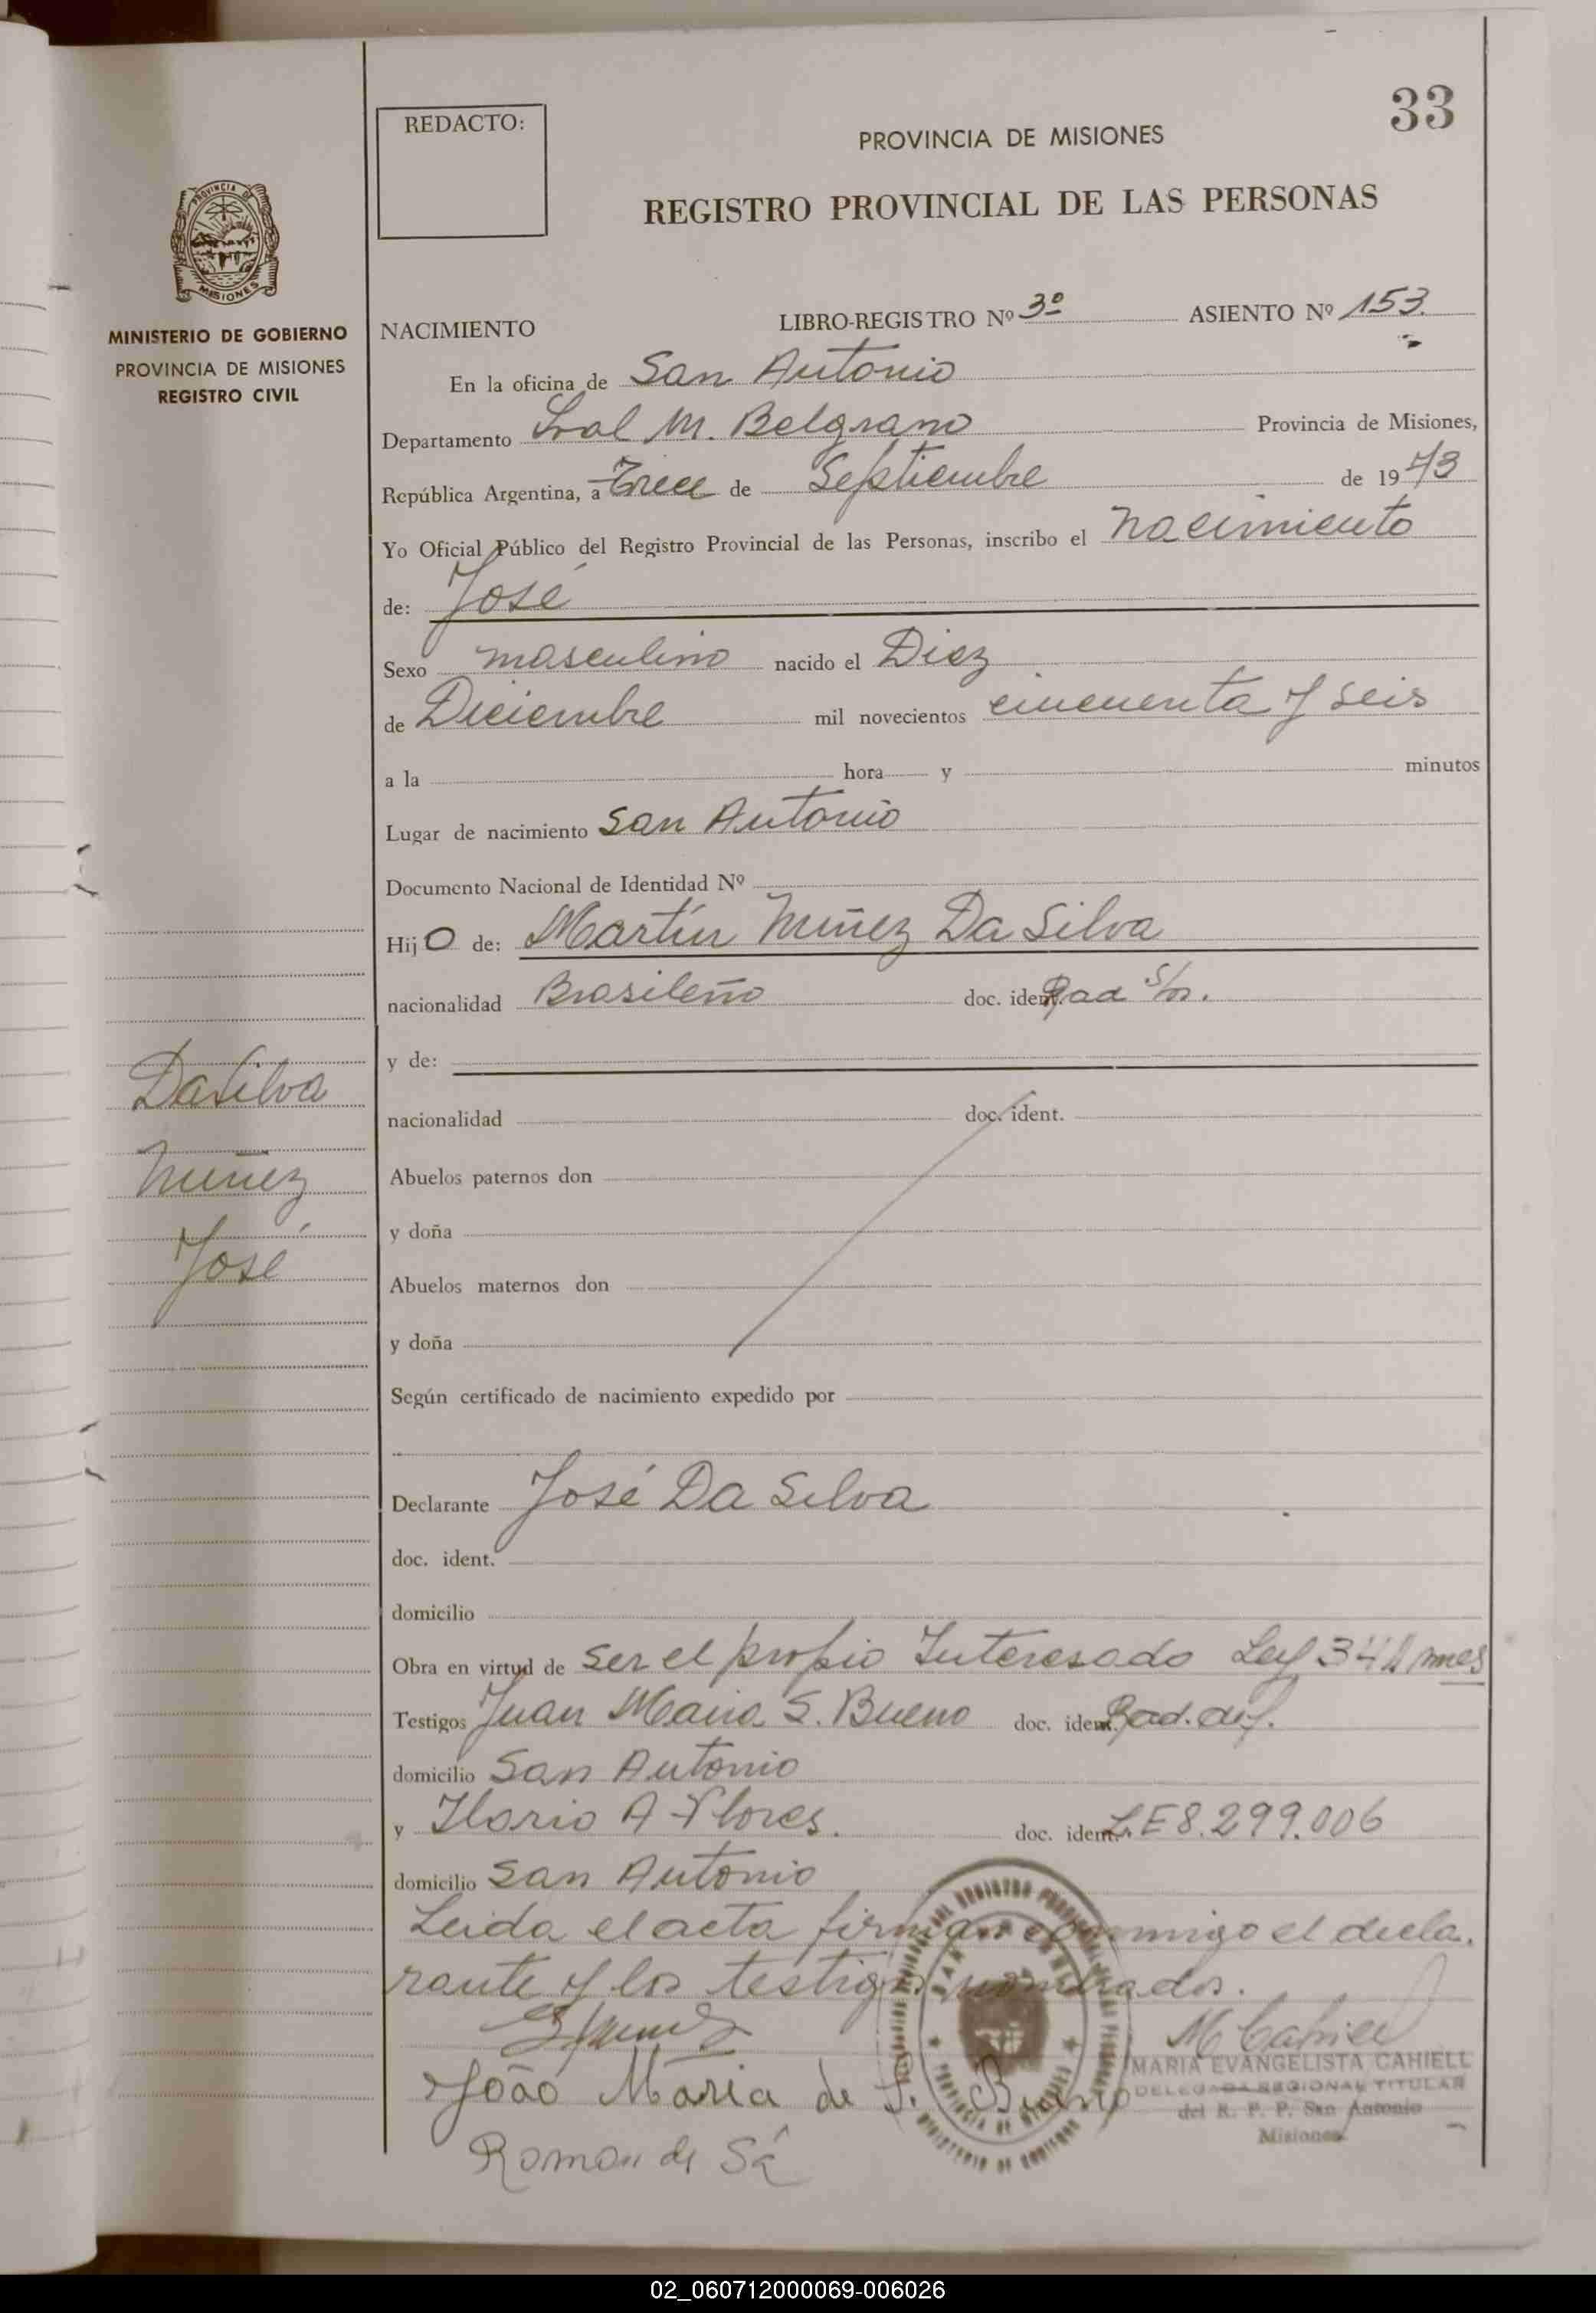 33
REDACTO:
PROVINCIA DE MISIONES
REGISTRO PROVINCIAL DE LAS PERSONAS
PROVINCIA DE
MISIONES
MINISTERIO DE GOBIERNO
PROVINCIA DE MISIONES
REGISTRO CIVIL
NACIMIENTO LIBRO-REGISTRO Nº 3º ASIENTO Nº 153.
En la oficina de San Antonio
Departamento Gral M. Belgrano Provincia de Misiones,
República Argentina, a Trece de Septiembre de 1973
Yo Oficial Público del Registro Provincial de las Personas, inscribo el nacimiento
de: José
Sexo masculino nacido el Diez
de Diciembre mil novecientos cincuenta y seis
a la hora y minutos
Lugar de nacimiento San Antonio
Documento Nacional de Identidad Nº
Hijo de: Martín Nuñez Da Silva
nacionalidad Brasileño doc. ident. Rad s/n.
y de:
nacionalidad doc. ident.
Abuelos paternos don
y doña
Abuelos maternos don
y doña
Según certificado de nacimiento expedido por
Declarante José Da Silva
doc. ident.
domicilio
Obra en virtud de ser el propio Interesado Ley
Testigos Juan Maria S. Bueno doc. ident. Rad.
domicilio San Antonio
y Ilario A Flores. doc. ident. LE 8.299.006
domicilio San Antonio
Leida el acta firman conmigo el decla.
rante y los testigos nombrados.
João Maria de S. Bueno
Roman de Sá
MARIA EVANGELISTA CAHIELL
DELEGADA REGIONAL TITULAR
del R. P. P. San Antonio
Misiones
DaSilva
Nuñez
José
02_060712000069-006026